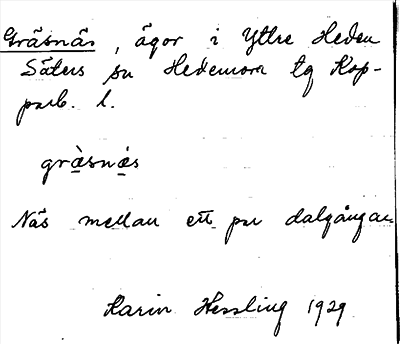 Gräsnäs, ägor i Yttre Heden
Säters sn Hedemora tg Kop-
parb. l.
grä̀snä́s
Näs mellan ett par dalgångar
Karin Hessling 1929